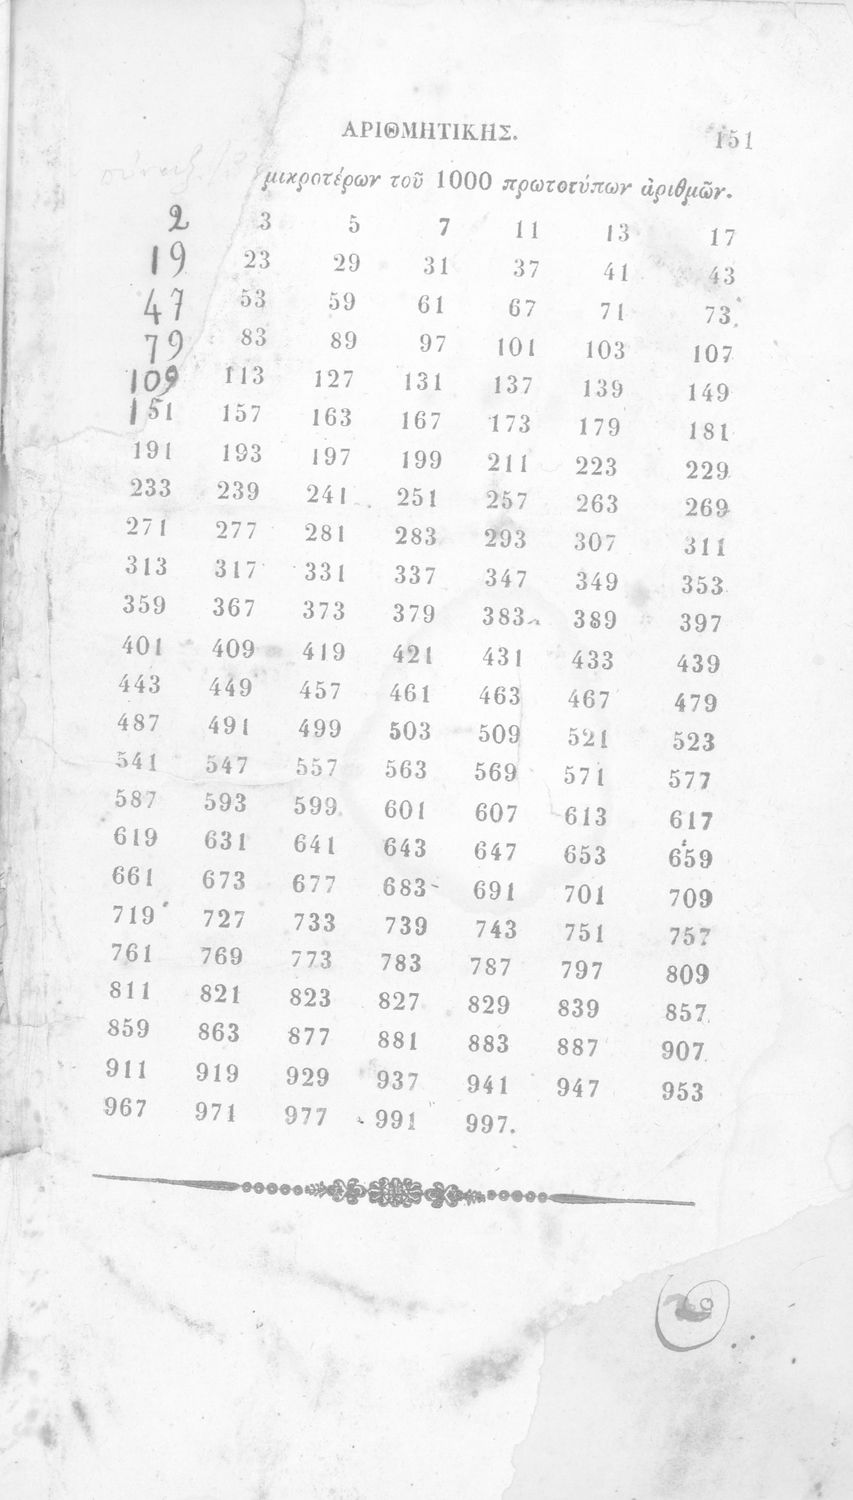 ΑΡΙΘΜΗΤΙΚΗΣ. 151
μικροτέρων τοῦ 1000 πρωτοτύπων ἀριθμῶν.
2 3 5 7 11 13 17
19 23 29 31 37 41 43
47 53 59 61 67 71 73
79 83 89 97 101 103 107
109 113 127 131 137 139 149
151 157 163 167 173 179 181
191 193 197 199 211 223 229
233 239 241 251 257 263 269
271 277 281 283 293 307 311
313 317 331 337 347 349 353
359 367 373 379 383 389 397
401 409 419 421 431 433 439
443 449 457 461 463 467 479
487 491 499 503 509 521 523
541 547 557 563 569 571 577
587 593 599 601 607 613 617
619 631 641 643 647 653 659
661 673 677 683 691 701 709
719 727 733 739 743 751 757
761 769 773 783 787 797 809
811 821 823 827 829 839 857
859 863 877 881 883 887 907
911 919 929 937 941 947 953
967 971 977 991 997.